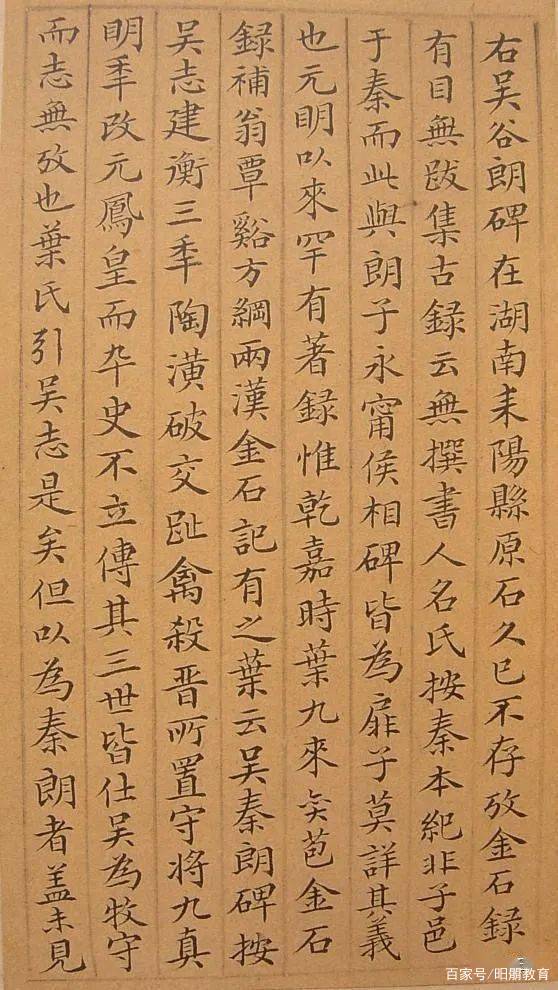 右吳谷朗碑在湖南耒陽縣原石久已不存攷金石録
有目無跋集古録云無撰書人名氏按秦本紀非子邑
于秦而此與朗子永甯侯相碑皆為扉子莫詳其義
也元明以來罕有著録惟乾嘉時葉九來奕苞金石
録補翁覃谿方綱兩漢金石記有之葉云吳秦朗碑按
吳志建衡三秊陶潢破交趾禽殺晉所置守將九真
明秊改元鳳皇而卒史不立傳其三世皆仕吳為牧守
而志無攷也葉氏引吳志是矣但以為秦朗者蓋未見
百家号/教育